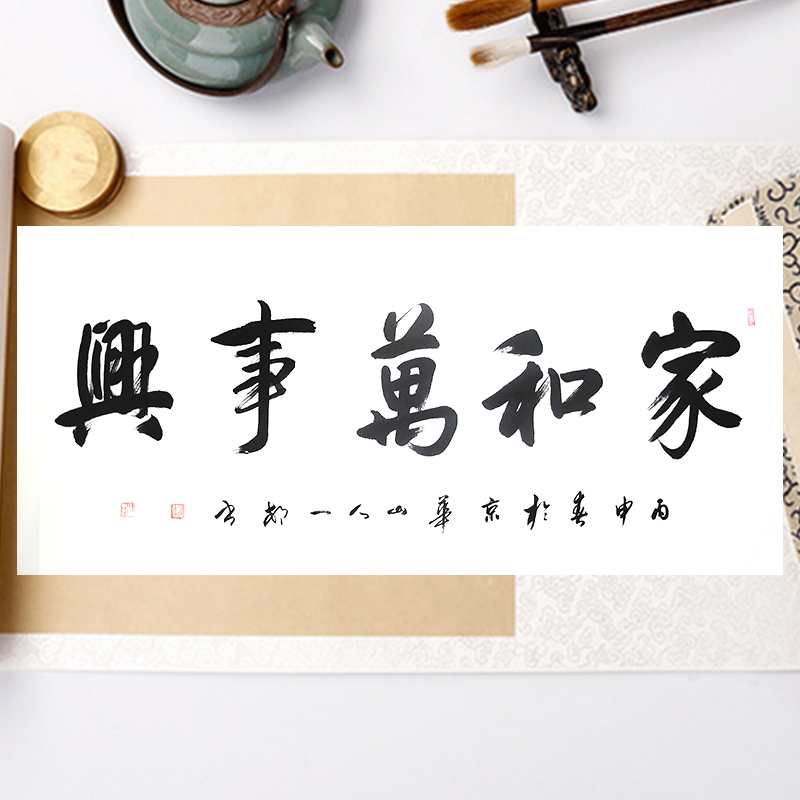 家和萬事興
丙申春於京華山人一都書